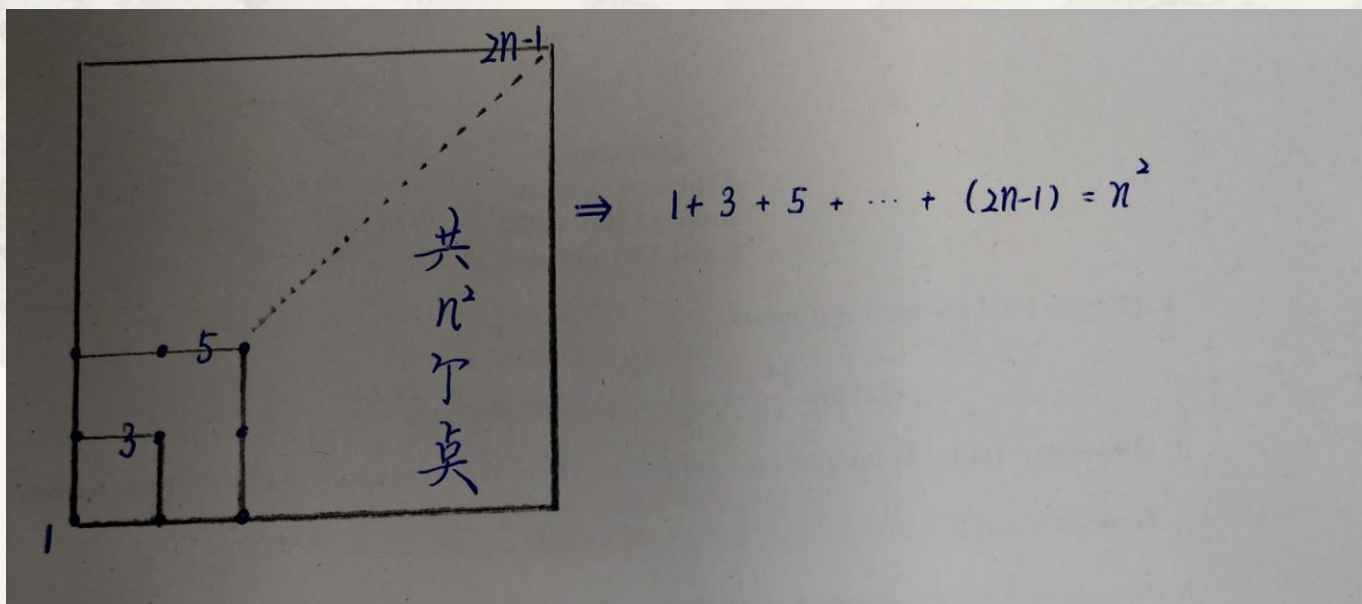 2n-1
1 + 3 + 5 + ··· + (2n-1) = n²
⇒
共
n²
个
点
5
3
1